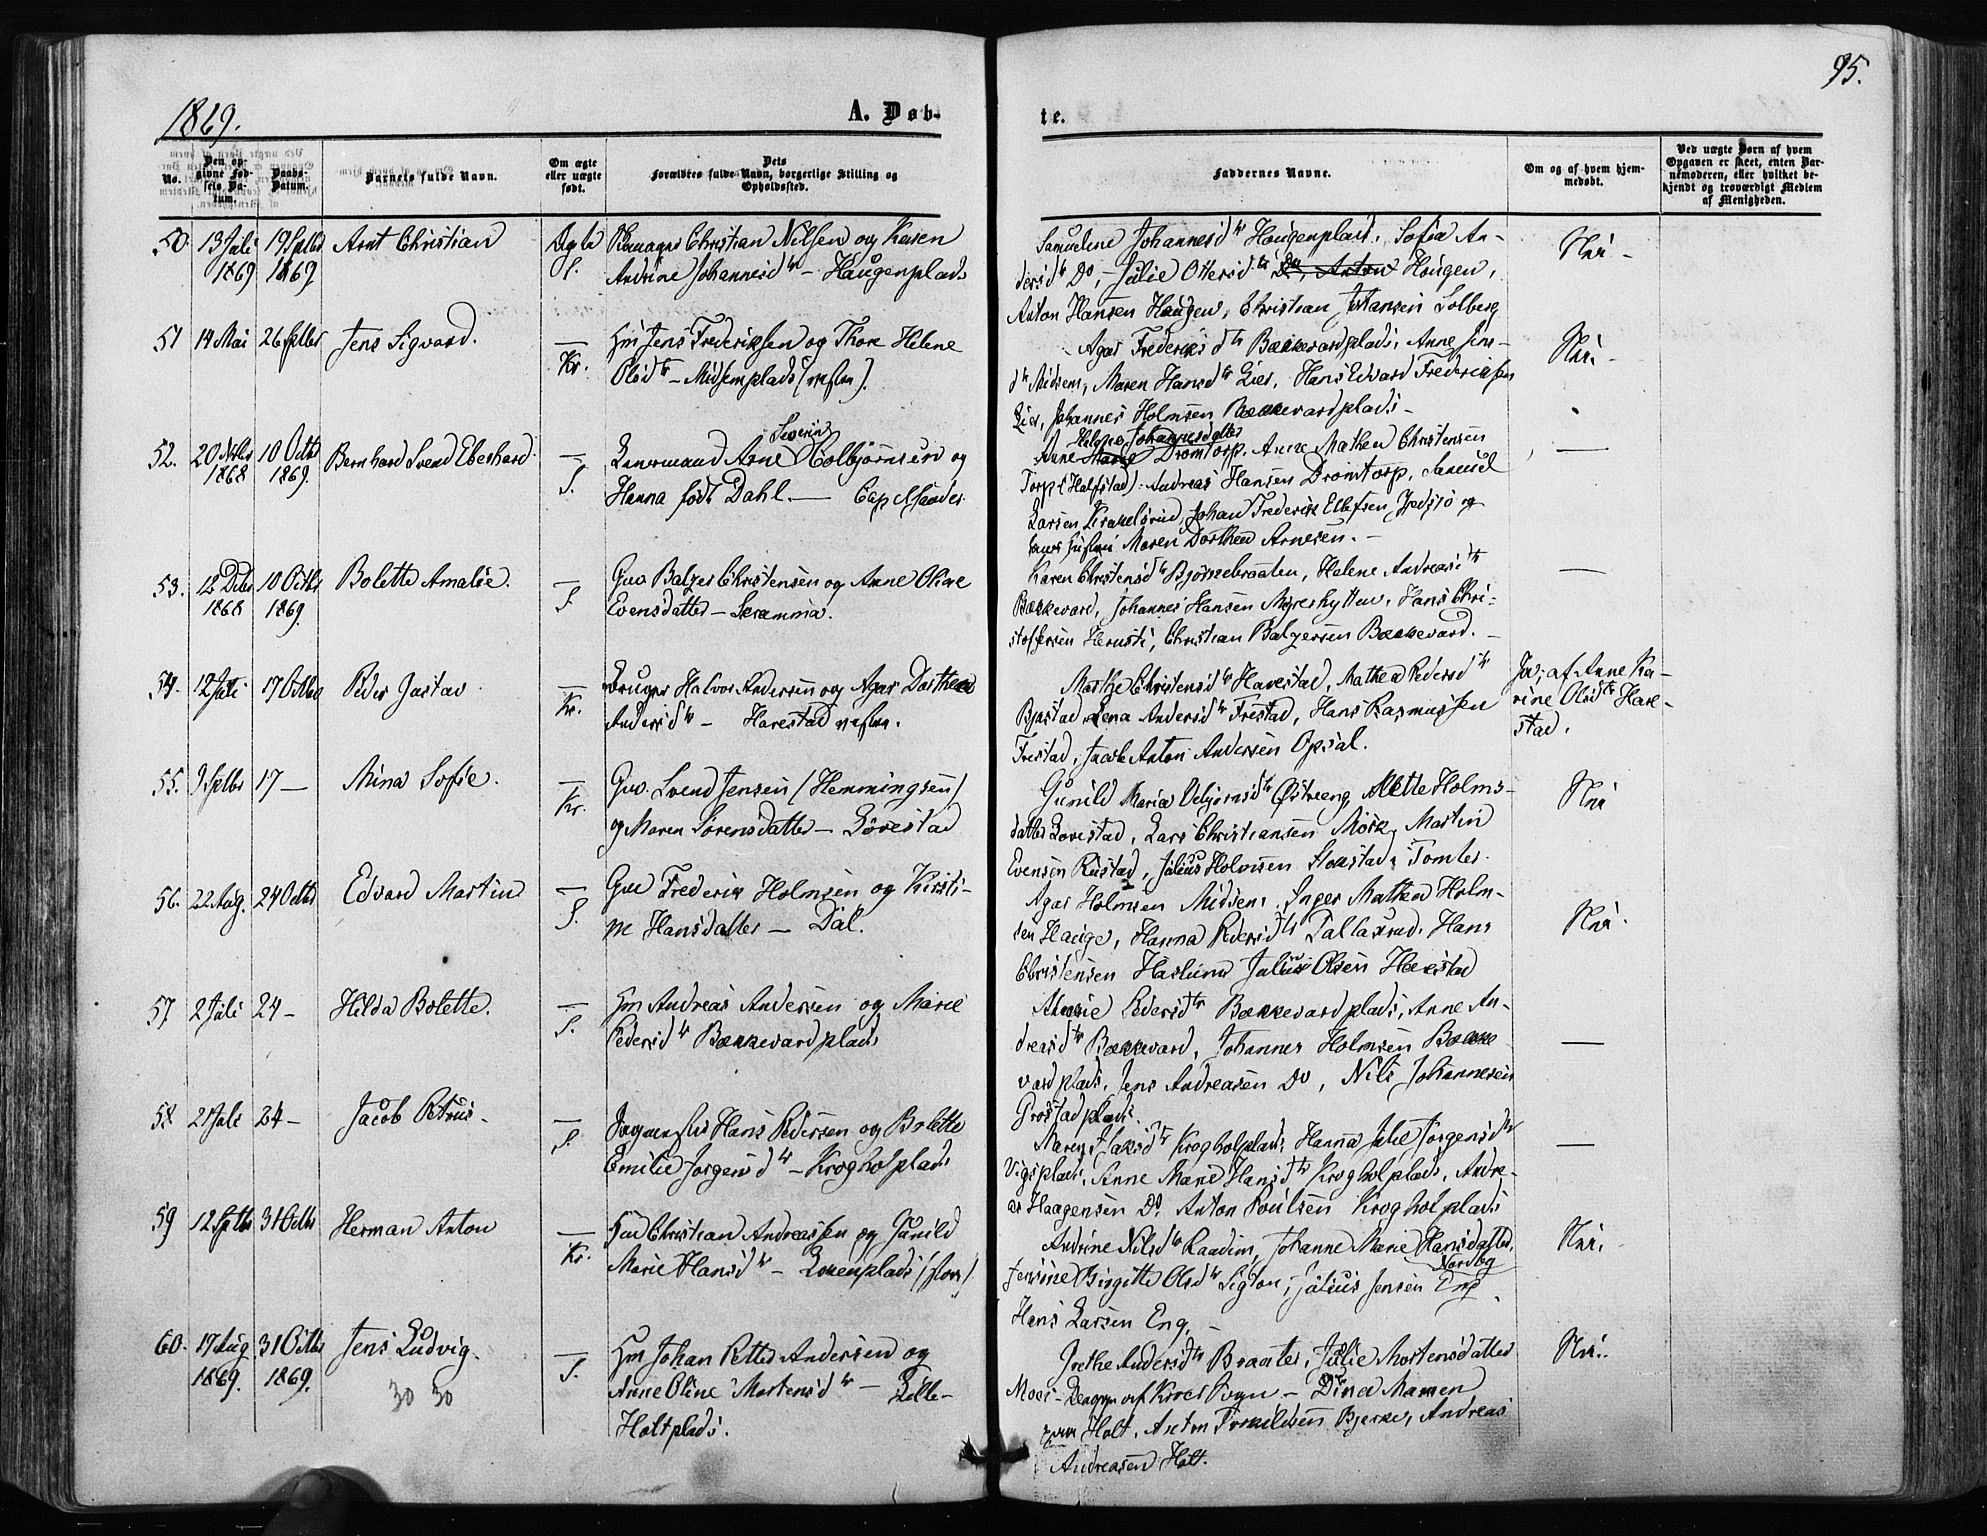 1869.
A. Døb-
te.
95.
No.
Den op-
givne Fød-
sels Da-
tum.
Daabs-
Datum.
Barnets fulde Navn.
Om ægte
eller uægte
født.
Dets
Forældres fulde Navn, borgerlige Stilling og
Opholdssted.
Faddernes Navne.
Om og af hvem hjem-
medøbt.
Ved uægte Børn af hvem
Opgaven er skeet, enten Bar-
nemoderen, eller hvilket be-
kjendt og troværdigt Medlem
af Menigheden.
50. 13 Juli 1869 19 Septbr 1869 Arnt Christian Ægte S. Christian Nilsen og Karen
Andrine Johannesdtr – Haugenplads
Samueline Johannesdtr Haugenplads, Sofia An-
dersdtr Do, Julie Ottersdtr Do, Anton Haugen,
Anton Hansen Haugen, Christian Johansen Solberg
Nei –
51 14 Mai 26 Septbr Jens Sigvard. — Kr. Hm Jens Frederiksen og Thore Helene
Olsdtr – Midsemplads
– Agas Frederiksdtr Bækkevardplads, Anne Jens-
dtr Midsem, Maren Hansdtr Lier, Hans Edvard Frederiksen
Lier, Johannes Holmsen Bækkevardplads –
Nei –
52. 20 1868 10 Octbr 1869. Bernhard Svend Eberhard. — S. Severin
Arne Colbjørnsen og
Hanna født Dahl. —
Helene Johannesdatter
Anne Marie Dromtorp, Anne Mathea Christensen
Torp (Halfstad). Andreas Hansen Dromtorp, Samuel
Larsen Krakelsrud, Johan Frederik Ellefsen og
Maren Dorthea Arnesen. –
—
53. 12 Decbr 1868 10 Octbr 1869. Bolette Amalie. — S. Gaa Balzer Christensen og Anne Oline
Evensdatter – Skramma.
Karen Christensdtr Bjørnebraaten, Helene Andreasdtr
Bækkevard, Johannes Hansen Myreshytten, Hans Chri-
stoffersen Herusti, Christian Balzersen Bækkevard. –
—
54. 12 Juli 17 Octbr Peder Gustav. — Kr. Bruger Halvor Andersen og Agas Dorthea
Andersdtr – Harestad
Martje Christensdtr Harestad, Mathea Pedersdtr
Bjostad, Lena Andersdtr Frestad, Hans Rasmussen
Frestad, Jacob Anton Andersen Opsal.
Ja, af Anne Ka-
rine Olsdtr Hare-
stad.
55. 9 Septbr 17 — Mina Sofie. — Kr. Gaa. Svend Jensen (Hemmingsen)
og Maren Sørensdatter – Løvestad
Gunild Maria Østreeng, Mette Holms-
datter Lovestad, Lars Christiansen Mørk, Martin
Evensen Rustad, Julius Holmsen Stokstad, Tomter.
Nei
56. 22 Aug. 24 Octbr Edvard Martin — S. Gaa Frederik Holmsen og Kirsti-
ne Hansdatter – Dal.
Agas Holmsen Midsem, Inger Mathea Holm-
sen Hauge, Hanna Pedersdtr Tallaxrud, Hans
Christensen Haslum, Julius Olsen Harestad
Nei.
57. 2 Juli 24 — Hilda Bolette. — S. Hm Andreas Andersen og Marie
Pedersdtr Bækkevardplads
Pedersdtr Bækkevardplads, Anne An-
dreasdtr Bækkevard, Johannes Holmsen Bække-
vardplads, Jens Andreasen Do, Nils Johannesen
Grostadplads.
—
58 21 Juli 24 — Jacob Petrus. — S. Hans Pedersen og Bolette
Emilie Jørgensdtr – Krogholplads
Maren Isaksdtr Krogholplads, Hanna Julie Jørgensdtr
Vigsplads, Anne Marie Hansdtr Krogholplads, Andre-
as Haagensen Do. Anton Poulsen Krogholplads
—
59 12 Septbr 31 Octbr Herman Anton — Kr. Christian Andreassen og Gunild
Marie Hansdtr –
Andrine Nilsdtr Raadim, Johanne Marie Hansdatter
Nordby
Jensine Birgitte Olsdtr Sigton, Julius Jensen Eng
Hans Larsen Eng. –
Nei.
60. 17 Aug 1869. 31 Octbr 1869. Jens Ludvig. — S. Hm Johan Petter Andersen og
Anne Oline Mortensdtr – Lille-
Holtplads.
30 30
Grethe Andersdtr Braaten, Julie Mortensdatter
Moes – Dina Mamen
Holt, Anton Torkildsen Bjerke, Andreas
Andreasen Holt.
Nei.